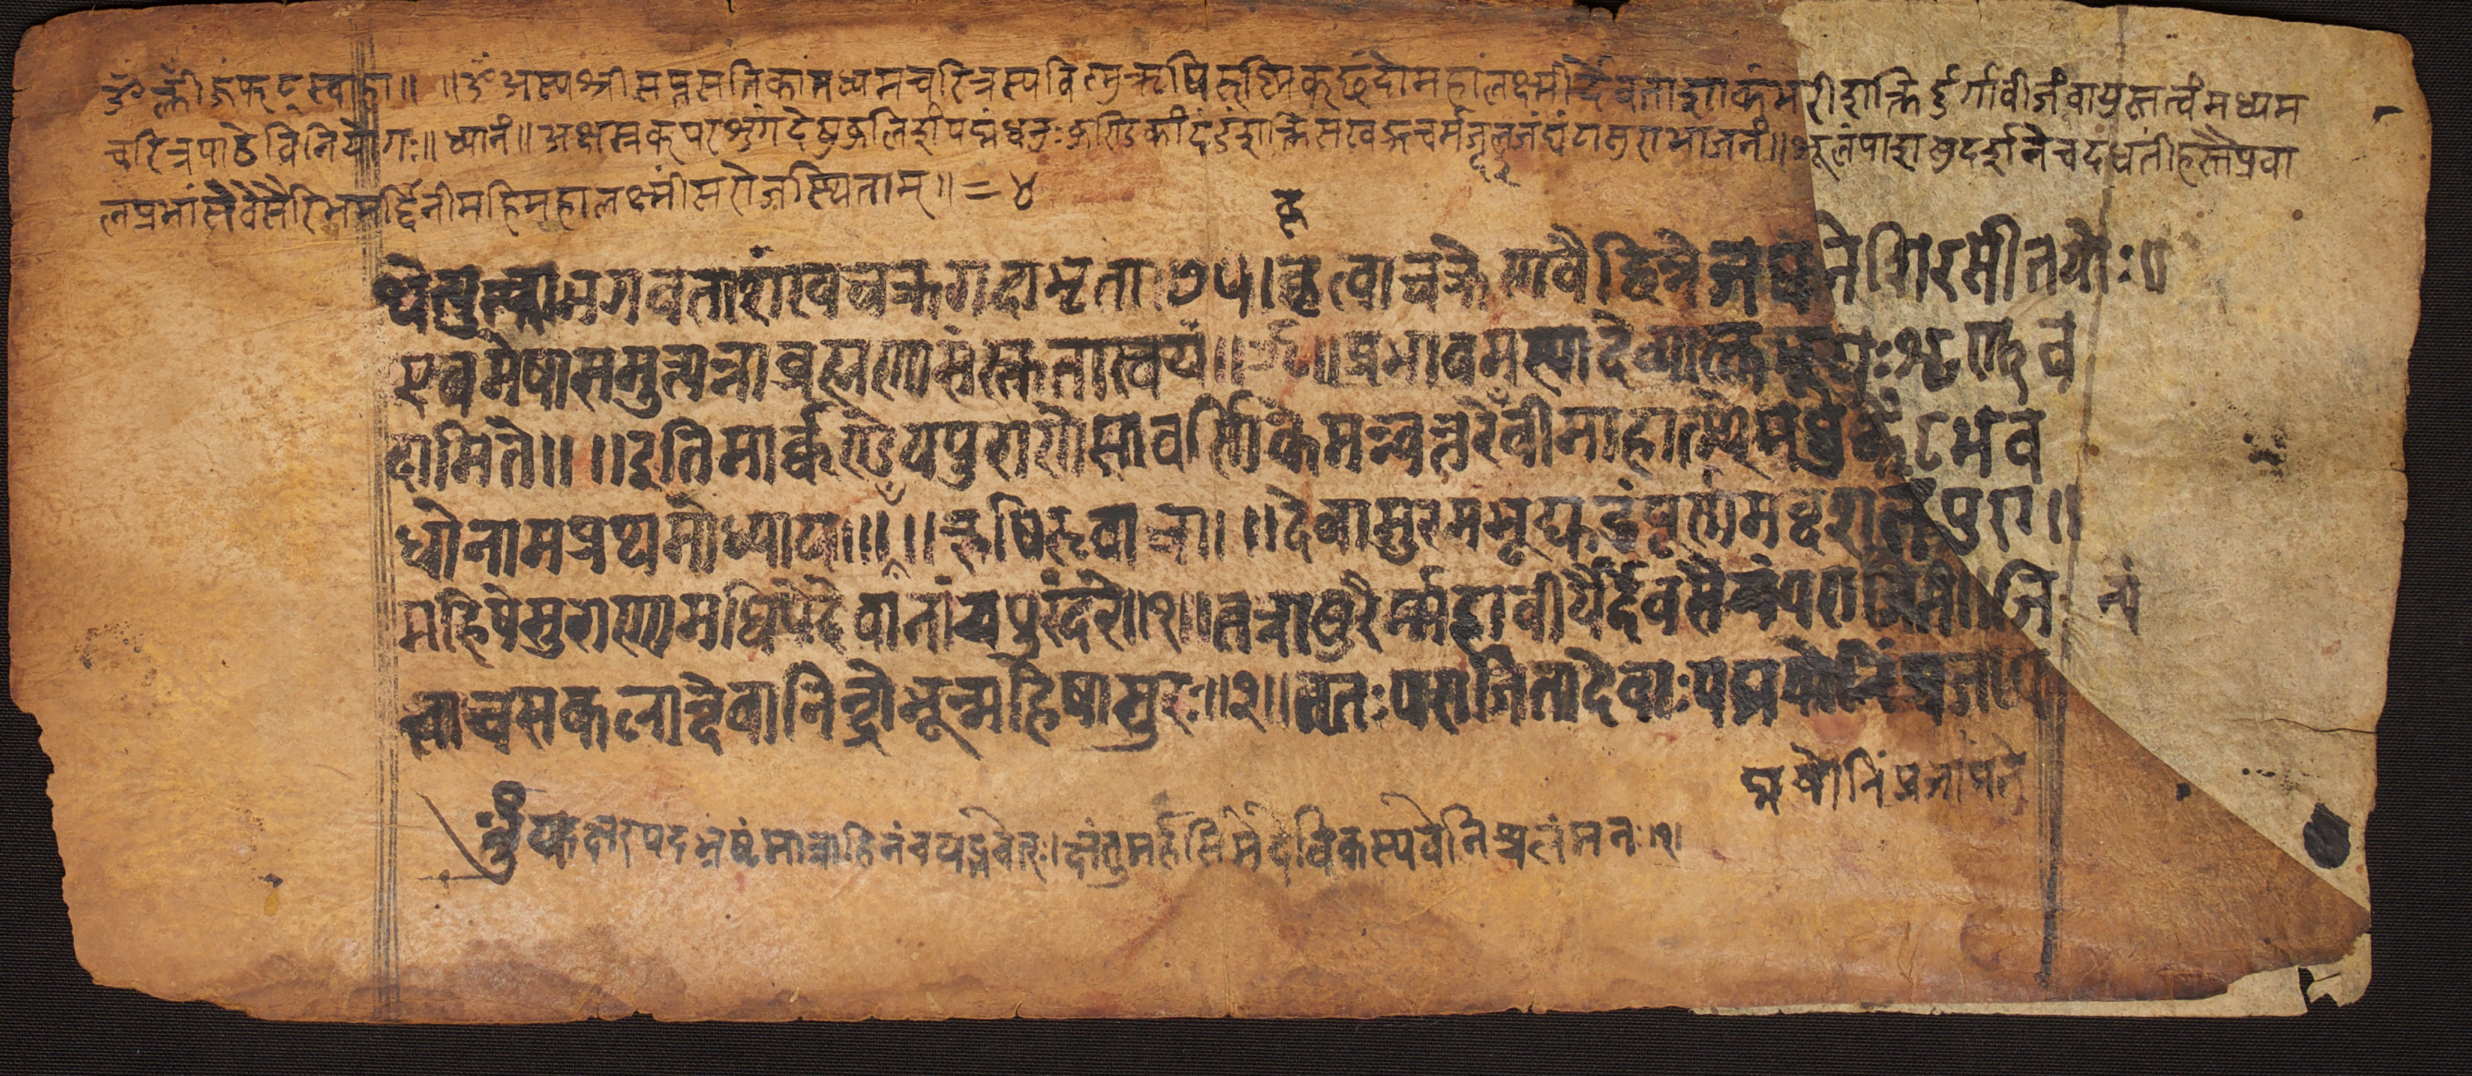 ॐ ह्रीं हूं फट् स्वाहा॥ ॥ॐ अस्य श्रीसप्तसतिकामध्यमचरित्रस्य विष्णुऋषिरुष्णिक्छंदो महालक्ष्मीर्देवता शाकंभरी शक्तिर्दुर्गावीजं वायुस्तत्वं मध्यम
चरित्रपाठे विनियोगः॥ ध्यानं॥ अक्षस्रक्परशुंगदेषुकुलिशं पद्मं धनुः कुण्डिकां दंडं शक्तिमसिंच चर्म जलजं घंटां सुराभाजनं॥ शूलं पाशसुदर्शनेच दधतीं हस्तैः प्रवा
लप्रभां सेवे सैरिभमर्द्दिनीमहिमहालक्ष्मीं सरोजस्थिताम्॥ = ४
कृ
थेत्युत्क्वा भगवता शंखचक्रगदाभृता ७५। कृत्वा चक्रेण वै छिन्ने जघने शिरसी तयोः॥
एवमेषा समुत्पन्ना ब्रह्मणा संस्तुता स्वयं॥ प्रभावमस्या देव्यास्तु भूयः शृणु व
दामिते॥ ॥इति मार्क्कण्डेयपुराणे सावर्णिके मन्वन्तरे देवीमाहात्म्ये मधुकैटभव
धोनाम प्रथमोध्यायः॥ ॥ऋषिरुवाच॥ ॥देवासुरमभूद्युद्धं पूर्णमब्दशतं पुरा॥
महिषेसुराणामधिपेदेवानांच पुरंदरे॥१॥ तत्रासुरैर्म्महावीर्यैर्द्देवसैन्यं पराजितं॥ जि न्यं
त्वाच सकलान्देवानिन्द्रोभून्महिषासुरः॥२॥ ततः पराजितादेवाः पद्मयोनिं प्रजाप
द्मयोनिं प्रजापते
यदक्षरपदभ्रष्टं मात्राहिनंच यद्भवेत्। क्षंतुमर्हसि मे देवि कस्य वै निश्चलं मनः।१।